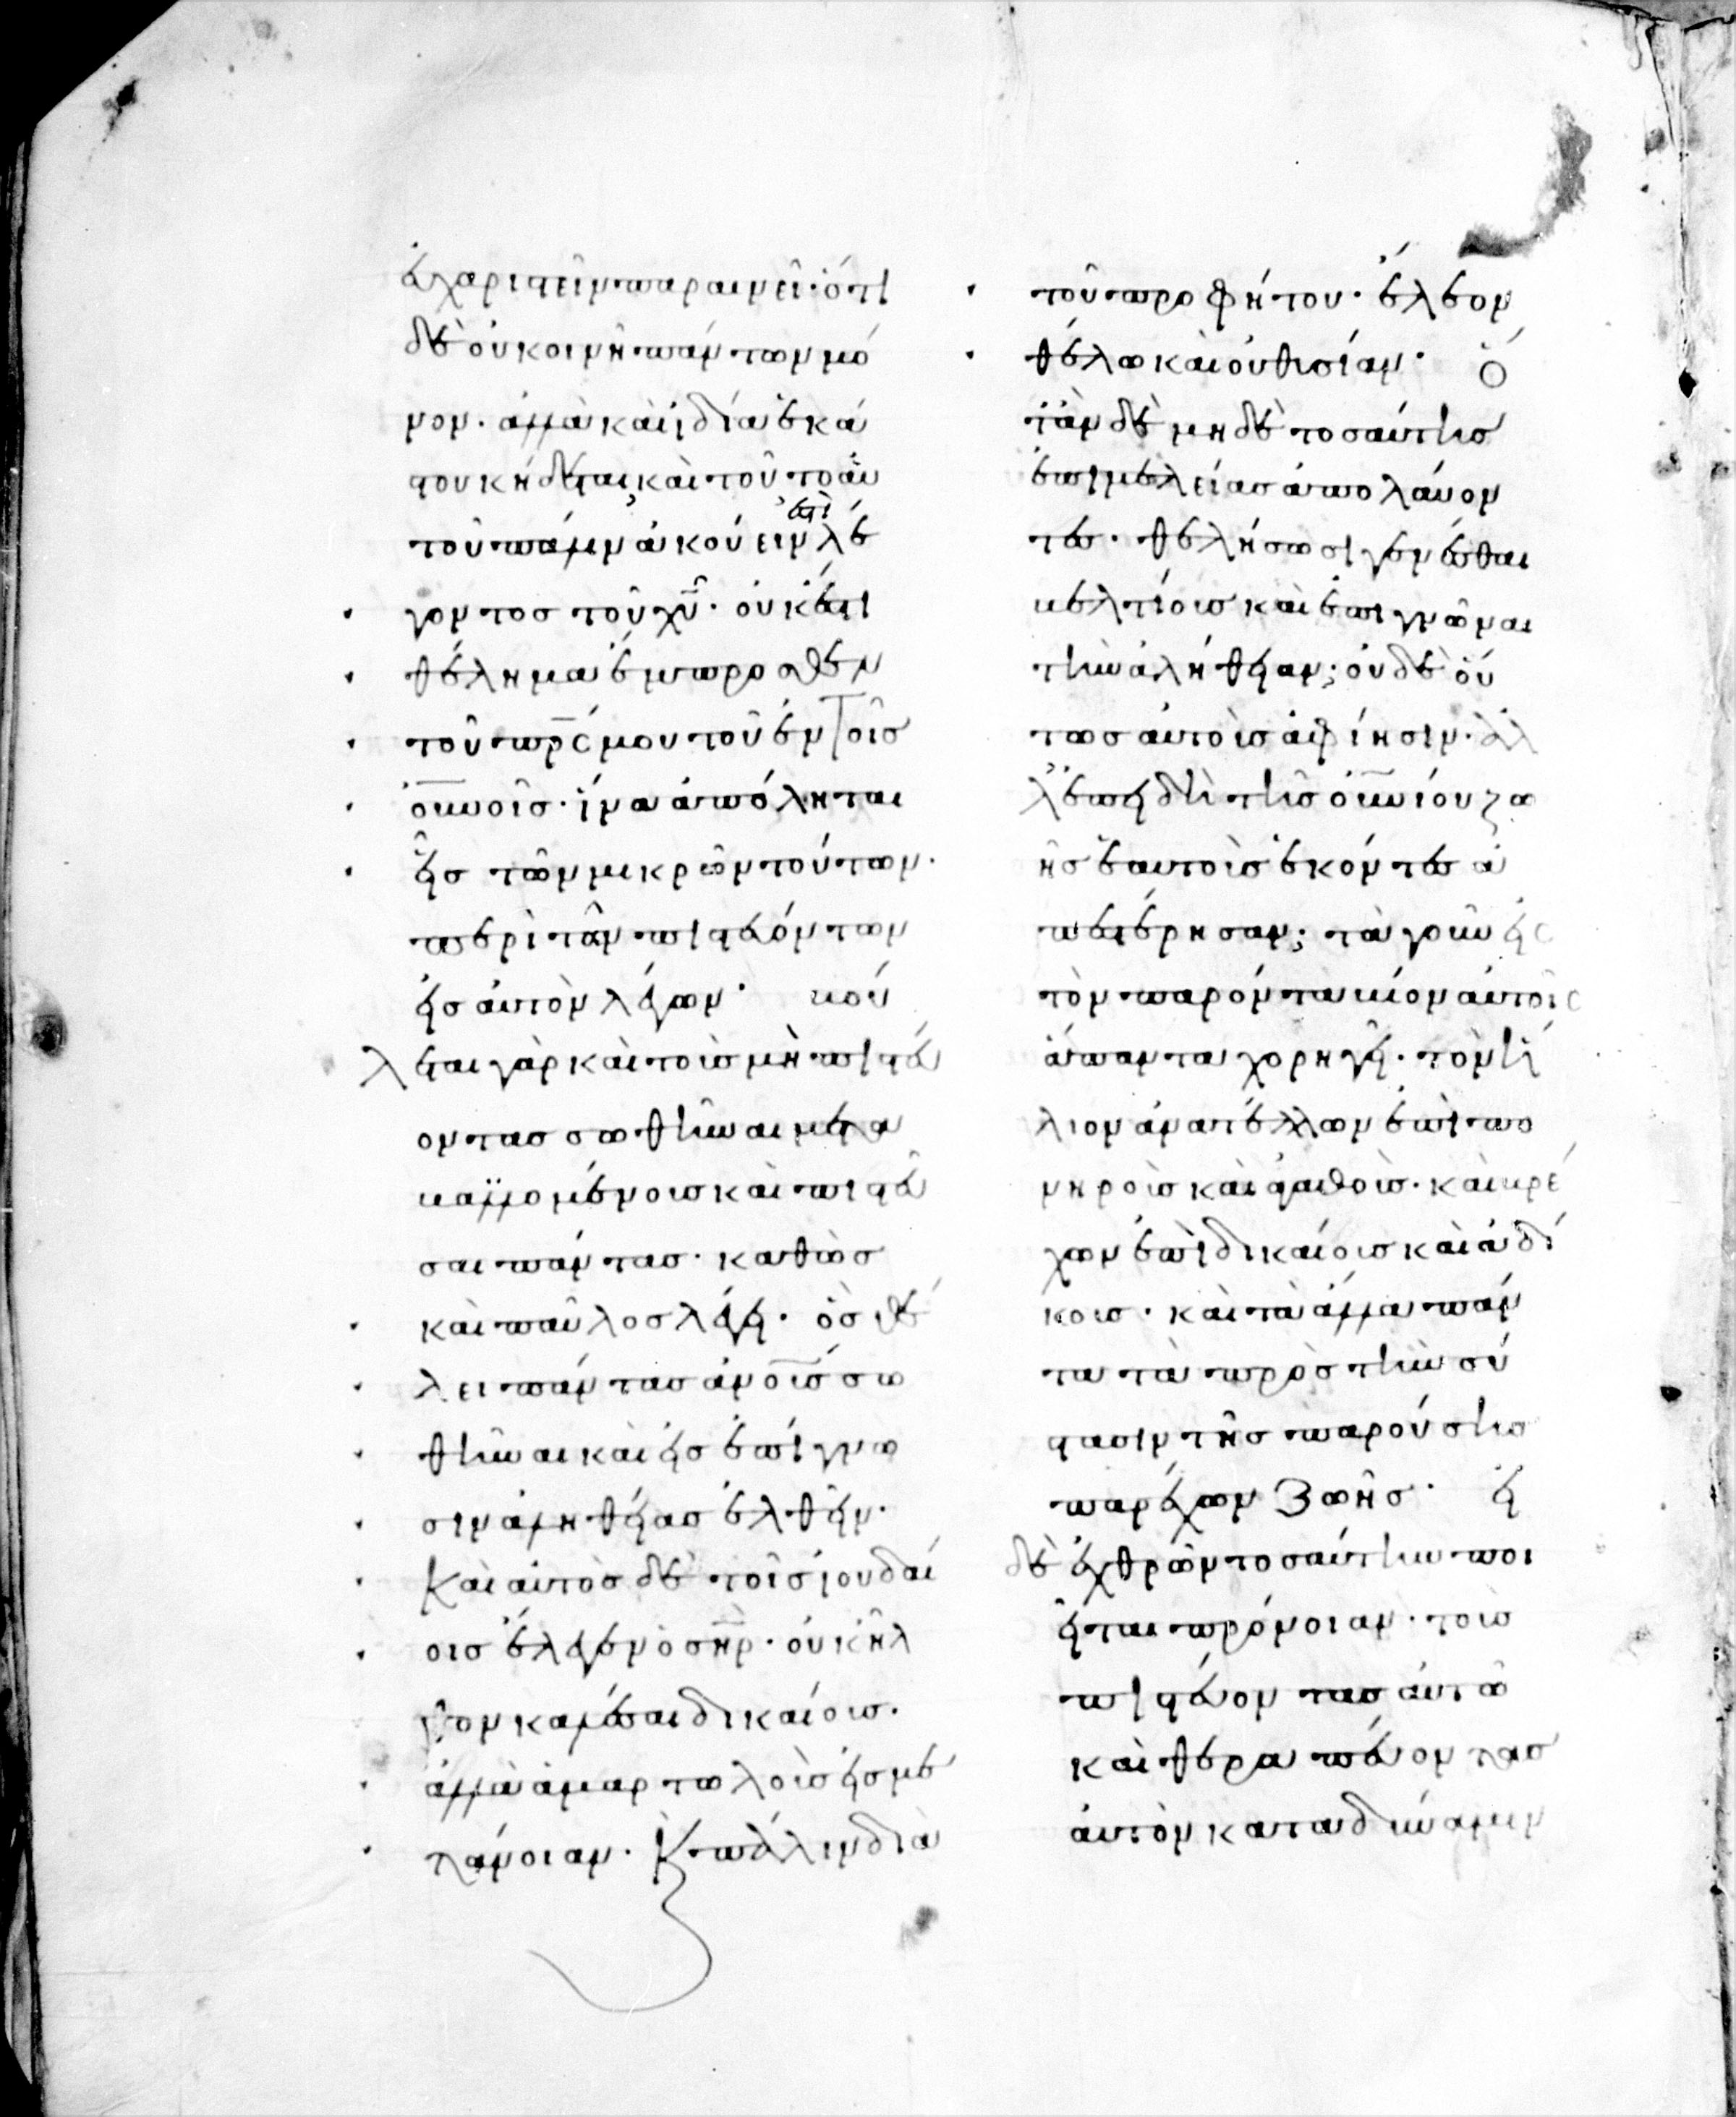 εὐχαριστεῖν παραινεῖ· ὅτι
δὲ οὐ κοινῆ πάντων μό
νον· ἀλλὰ καὶ ἰδία ἑκά
στου κήδεται, καὶ τοῦτο αὐ
τοῦ πάλιν ἀκούειν ἔστι λέ
γοντος τοῦ χυ· οὐκ ἔστι
θέλημα ἔμπροσθεν
τοῦ πρσ μου τοῦ ἐν τοῖς
οὐνοῖς· ἵνα ἀπόληται
εἷς τῶν μικρῶν τούτων·
περὶ τῶν πιστευόντων
εἰς αὐτὸν λέγων· βού
λεται γὰρ καὶ τοὺς μὴ πιστεύ
οντας σωθῆναι μετα
βαλλομένους καὶ πιστεῦ
σαι πάντας· καθὼς
καὶ παῦλος λέγει· ὃς θέ
λει πάντας ἀνους σω
θῆναι καὶ εἰς ἐπίγνω
σιν ἀληθείας ἐλθεῖν·
Καὶ αὐτὸς δὲ τοῖς ἰουδαί
οις ἔλεγεν ὁ σηρ· οὐκ ἦλ
θον καλέσαι δικαίους·
ἀλλὰ ἁμαρτωλοὺς εἰς με
τάνοιαν· Καὶ πάλιν διὰ
τοῦ προφήτου· ἔλεον
θέλω καὶ οὐ θυσίαν· ὅ
τὰν δὲ μηδὲ τοσαύτης
ἐπιμελείας ἀπολαύον
τες· θελήσωσι γενέσθαι
βελτίους καὶ ἐπιγνῶναι
τὴν ἀλήθειαν; οὐδὲ οὕ
τως αὐτοὺς ἀφίησιν· ἀλ
λ' ἐπειδὴ τῆς οὐνίου ζω
ῆς ἑαυτοὺς ἑκόντες ἀ
πεστέρησαν; τὰ γοῦν εἰς
τὸν παρόντα βίον αὐτοῖς
ἅπαντα χορηγεῖ· τὸν ἥ
λιον ἀνατέλλων ἐπὶ πο
νηροὺς καὶ ἀγαθοὺς· καὶ βρέ
χων ἐπὶ δικαίους καὶ ἀδί
κους· καὶ τὰ ἄλλα πάν
τα τὰ πρὸς τὴν σύ
στασιν τῆς παρούσης
παρέχων ζωῆς· εἰ
δὲ ἐχθρῶν τοσαύτην ποι
εῖται πρόνοιαν· τοὺς
πιστεύοντας αὐτῶ
καὶ θεραπεύοντας
αὐτὸν κατὰ δύναμιν